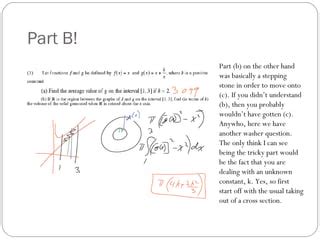 Part B!
(3) Let functions f and g be defined by f(x) = x and g(x) = x + k/x, where k is a positive
constant.
(a) Find the average value of g on the interval [1, 3] if k = 2. 3.099
(b) If R is the region between the graphs of f and g on the interval [1, 3], find (in terms of k)
the volume of the solid generated when R is rotated about the x-axis.
1 3
π [(g(x))² - x²]
3
π ∫ [g(x)]² - x² dx
1
Part (b) on the other hand
was basically a stepping
stone in order to move onto
(c). If you didn't understand
(b), then you probably
wouldn't have gotten (c).
Anywho, here we have
another washer question.
The only think I can see
being the tricky part would
be the fact that you are
dealing with an unknown
constant, k. Yes, so first
start off with the usual taking
out of a cross section.